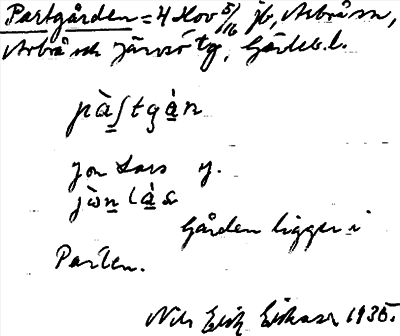 Partgården = 4 Nov 5/16 jb, Arbrå sn,
Arbrå och Järvsö tg, Gävleb. l.
pàʃtgàn
Jon Lars g.
jòn làs
Gården ligger i
Parten.
Nils Erik Eriksson 1935.